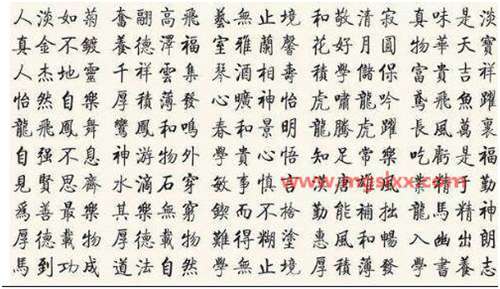 人淡如菊 奮翮高飛 藝無止境 和敬清寂 真味是淡
真金不鍍 養德澤福 室雅蘭馨 花好月圓 物華天寶
人杰地靈 千祥雲集 琴酒相壽 積學儲保 富貴吉祥
怡然自樂 厚積薄發 心曠神怡 虎嘯龍吟 鳶飛魚躍
龍飛鳳舞 鸞鳳和鳴 春和景明 龍騰虎躍 長風萬裏
自强不息 神游物外 學貴心悟 知足常樂 吃虧是福
見賢思齊 水滴石穿 敏事慎 業精于勤
爲善最樂 其樂無窮 鍥而不捨 勤能補拙 龍馬精神
厚德載物 厚 難得糊塗 惠風和暢 入幽出朗
馬到功成 道法自然 學無止境 厚積薄發 學書養志
www.mgslxx.com